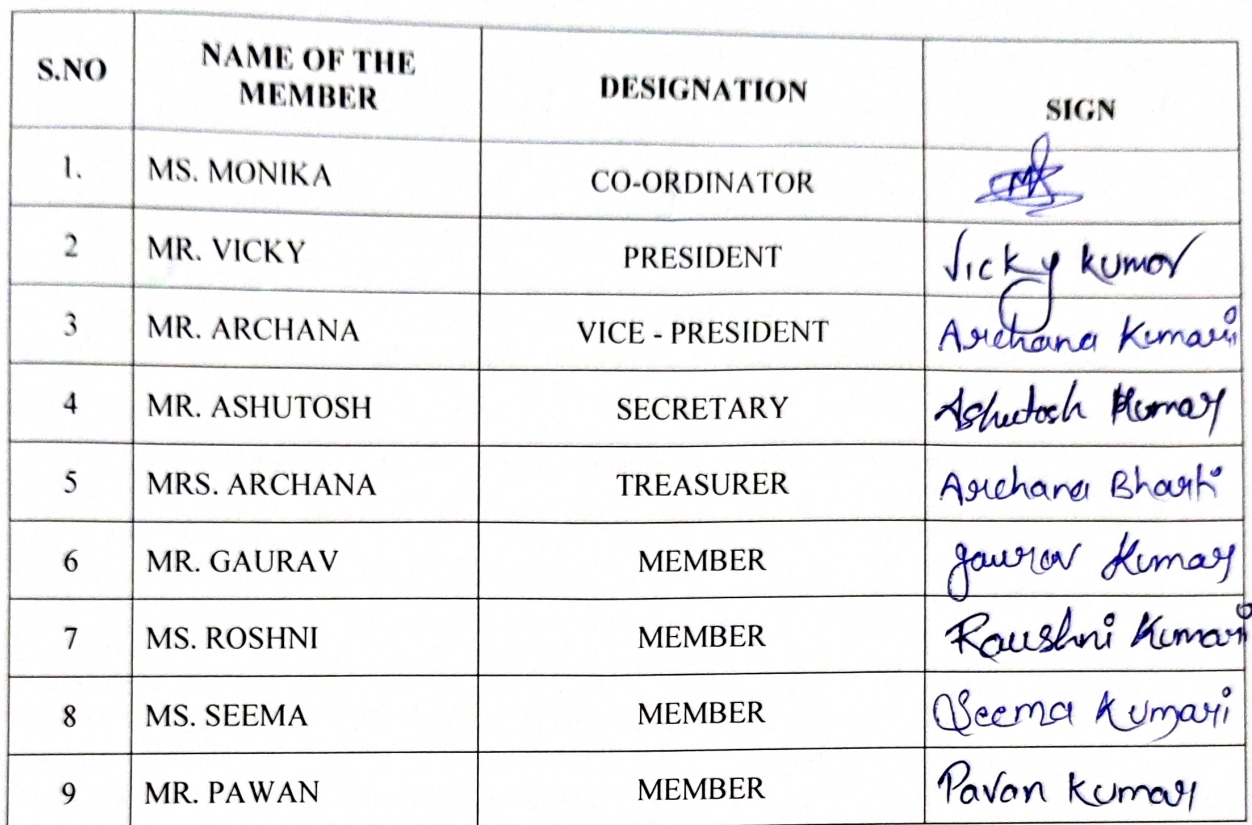 S.NO NAME OF THE MEMBER DESIGNATION SIGN
1. MS. MONIKA CO-ORDINATOR
2 MR. VICKY PRESIDENT Vicky kumar
3 MR. ARCHANA VICE - PRESIDENT Archana Kumari
4 MR. ASHUTOSH SECRETARY Ashutosh Kumar
5 MRS. ARCHANA TREASURER Archana Bharti
6 MR. GAURAV MEMBER gaurav Kumar
7 MS. ROSHNI MEMBER Raushni Kumari
8 MS. SEEMA MEMBER Seema Kumari
9 MR. PAWAN MEMBER Pavan Kumar